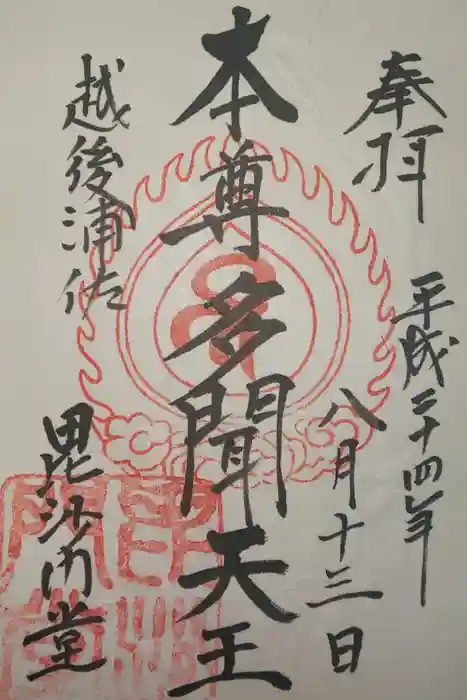 奉拝
平成二十四年
八月十三日
本尊多聞天王
越後浦佐
毘沙門堂